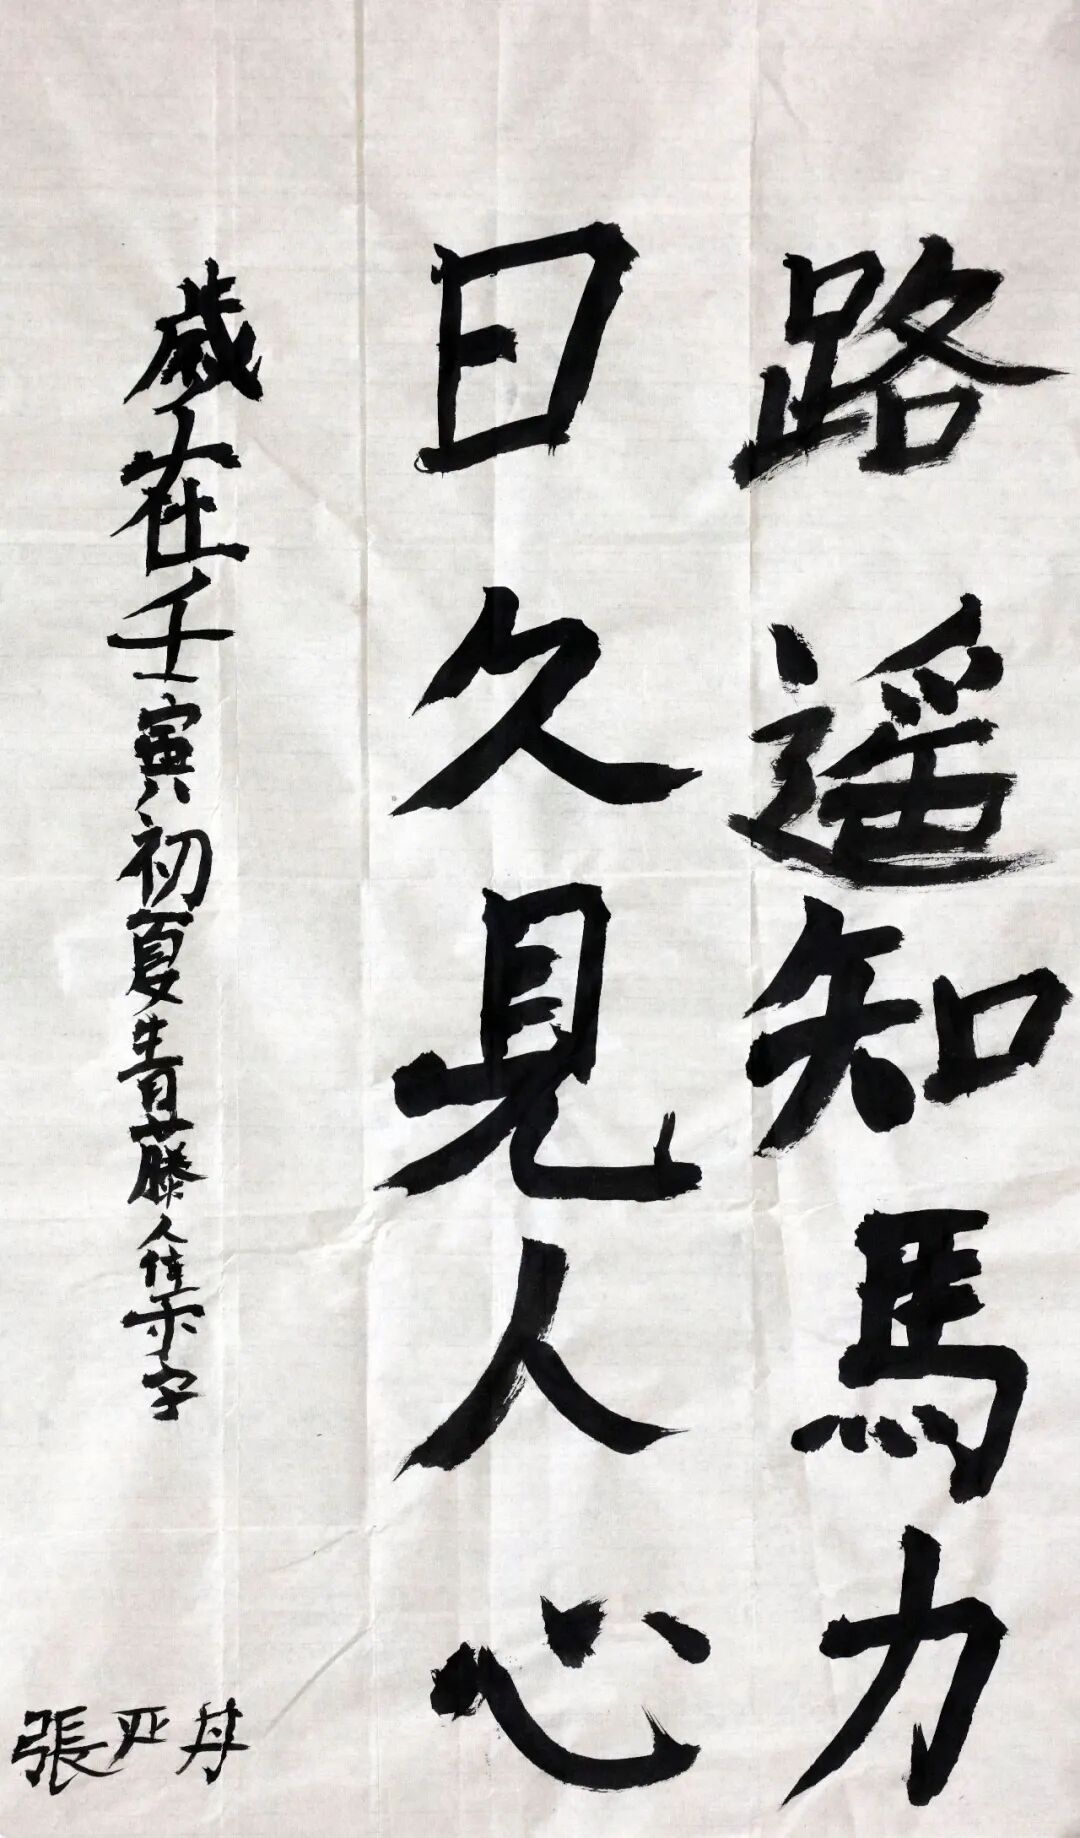 路遥知馬力
日久見人心
歲在壬寅初夏青藤人佳乐字
張严丹